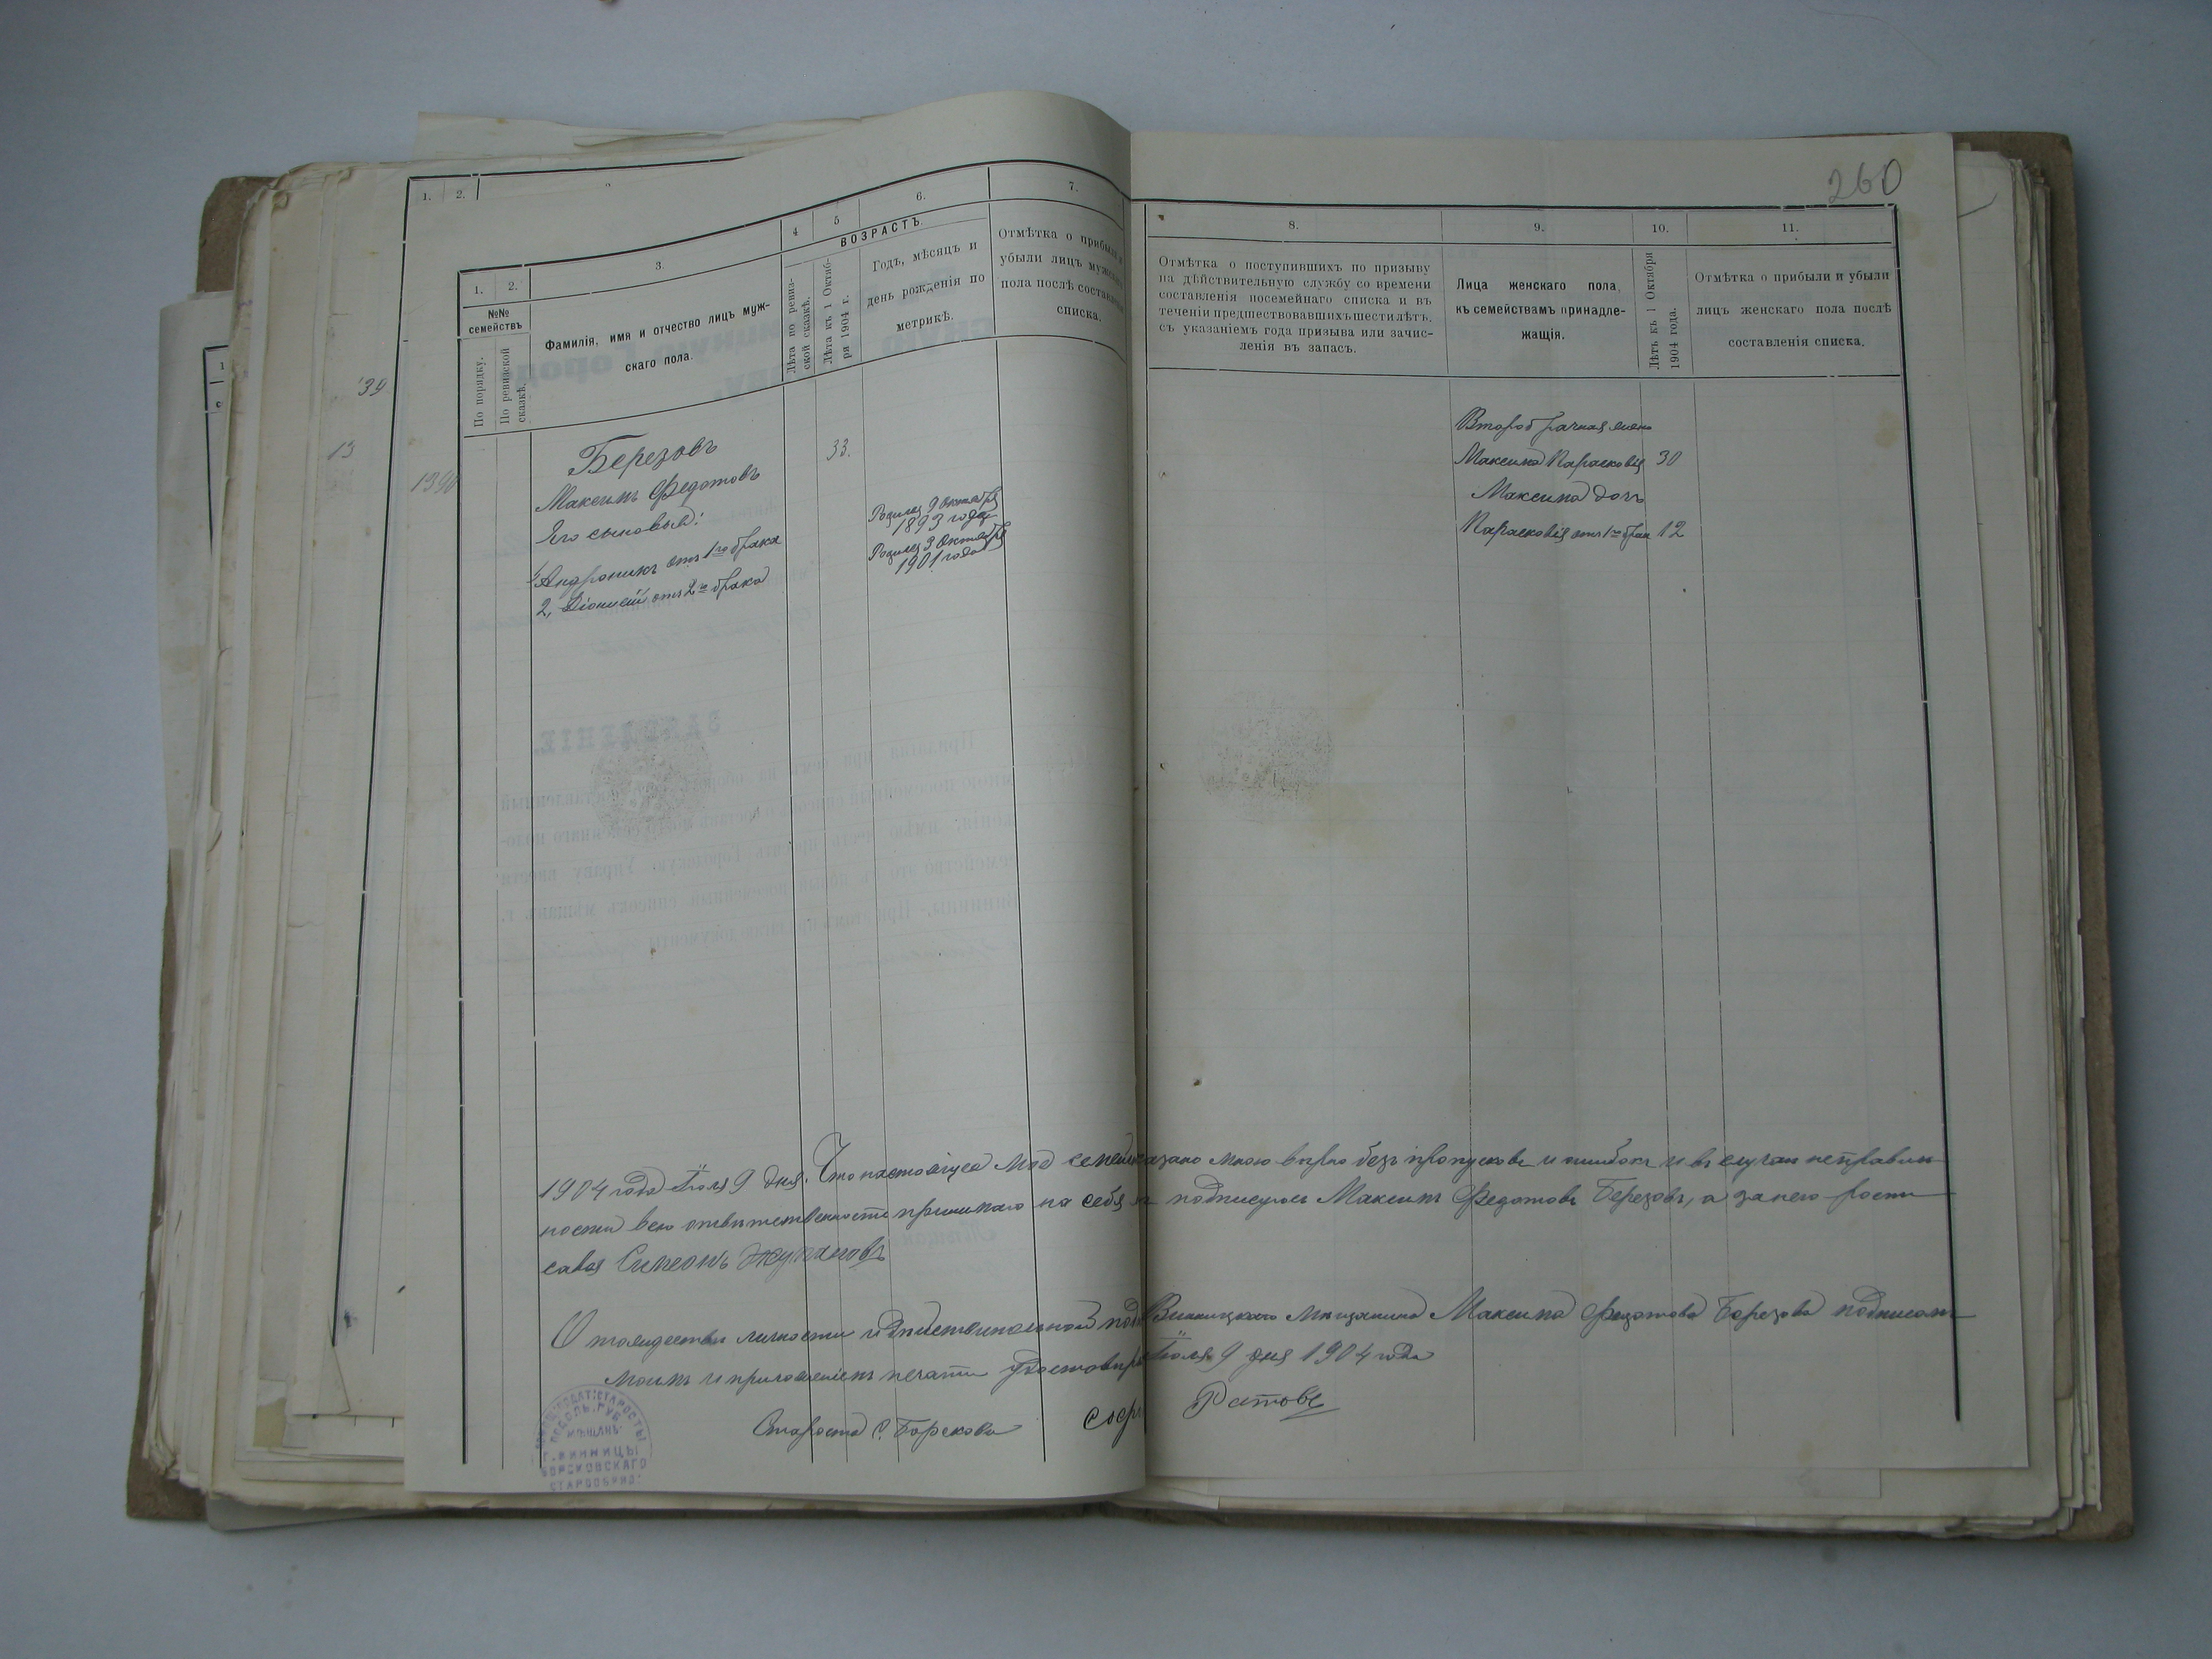 260
1. 2.
1. 2. 3. 4 5 6. 7.
№№ семействъ
По порядку.
По ревизской сказкѣ.
Фамилія, имя и отчество лицъ муж-
скаго пола.
ВОЗРАСТЪ.
Лѣта по ревиз-
ской сказкѣ.
Лѣта къ 1 Октяб-
ря 1904 г.
Годъ, мѣсяцъ и
день рожденія по
метрикѣ.
Отмѣтка о прибыли и
убыли лицъ
пола послѣ
списка.
39
13
1390
Березовъ
33.
Максимъ Федотовъ
Его сыновья:
Андроникъ отъ 1го брака
Родился 9 Октября
1893 года
2, Діонисій отъ 2го брака
Родился 3 Октября
1901 года
8. 9. 10. 11.
Отмѣтка о поступившихъ по призыву
на дѣйствительную службу со времени
составленія посемейнаго списка и въ
теченіи предшествовавшихъ шести лѣтъ,
съ указаніемъ года призыва или зачис-
ленія въ запасъ.
Лица женскаго пола,
къ семействамъ принадле-
жащія.
Лѣтъ къ 1 Октября
1904 года.
Отмѣтка о прибыли и убыли
лицъ женскаго пола послѣ
составленія списка.
Второбрачная жена
Максима Парасковія 30
Максима дочь
Парасковія отъ 1го брак 12
1904 года Іюля 9 дня. Что настоящее моё семей казано мною вѣрно безъ пропусковъ и ошибокъ и въ случаи неправиль
ности всю отвѣтственность принимаю на себя подписуюсь Максимъ Федотовъ Березовъ, а за него роспи
савси Симеонъ Жупановъ
О тождествѣ личности и дѣйствительной Винницкаго Мѣщанина Максима Федотова Березова подписом
моимъ и приложеніемъ печати Іюля 9 дня 1904 года
Староста с. Борскова
МѢЩАНЪ
Г. ВИННИЦЫ
БОРСКОВСКАГО
СТАРООБРЯД.